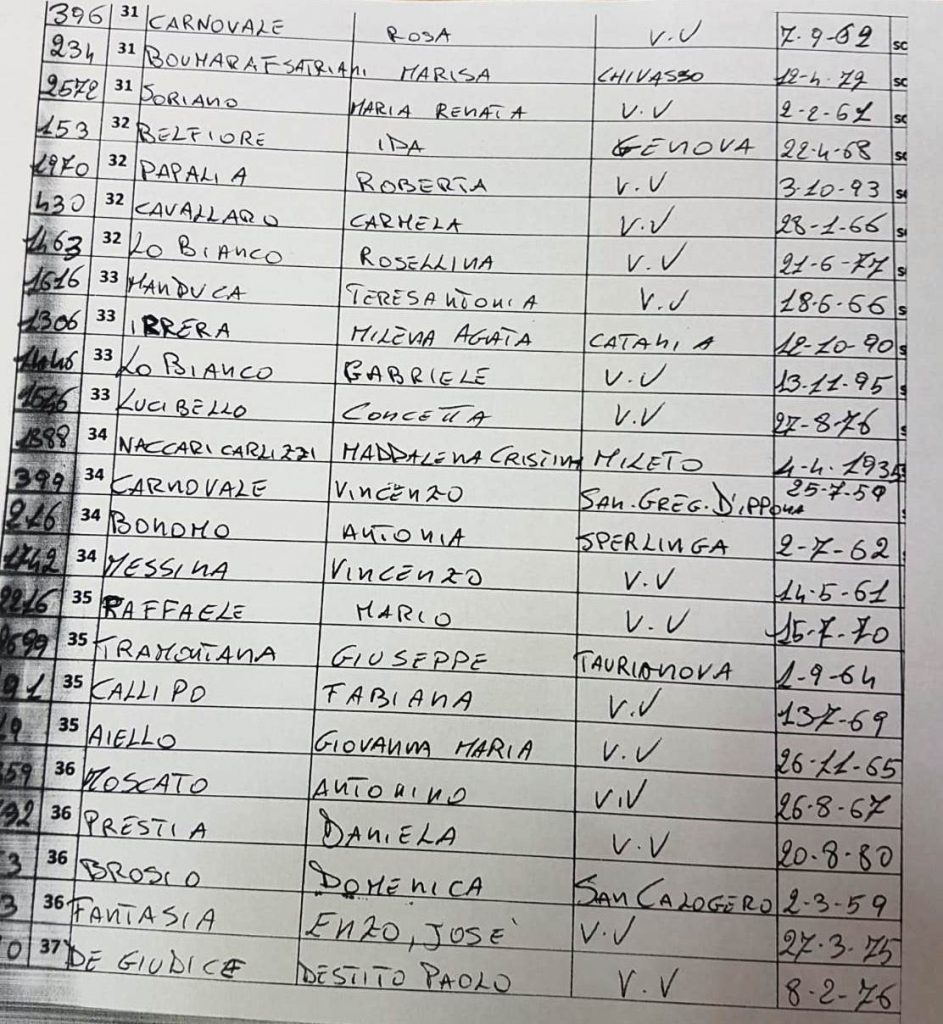 396 31 CARNOVALE ROSA V.V 7-9-62 sc
234 31 BOUMARAFSATRIANI MARISA CHIVASSO 12-4-72 sc
2572 31 SORIANO MARIA RENATA V.V 2-2-61 sc
153 32 BELFIORE IDA GENOVA 22-4-68 sc
1970 32 PAPALIA ROBERTA V.V 3-10-93 s
430 32 CAVALLARO CARMELA V.V 28-1-66 s
1463 32 LO BIANCO ROSELLINA V.V 21-6-77 s
1616 33 MANDUCA TERESANTONIA V.V 18-6-66 s
1306 33 IRRERA MILENA AGATA CATANIA 12-10-90 s
33 LO BIANCO GABRIELE V.V 13-11-95 s
33 LUCIBELLO CONCETTA V.V 27-8-76
1888 34 NACCARI CARLIZZI MADDALENA CRISTINA MILETO 4-4-1935
399 34 CARNOVALE VINCENZO SAN.GREG.D'IPPONA 25-7-59
216 34 BONOMO ANTONIA SPERLINGA 2-7-62
1742 34 MESSINA VINCENZO V.V 14-5-61
2216 35 RAFFAELE MARIO V.V 15-7-70
35 TRAMONTANA GIUSEPPE TAURIANOVA 1-9-64
91 35 CALLIPO FABIANA V.V 137-69
9 35 AIELLO GIOVANNA MARIA V.V 26-11-65
59 36 MOSCATO ANTONINO V.V 26-8-67
92 36 PRESTIA DANIELA V.V 20-8-80
3 36 BROSIO DOMENICA SAN CALOGERO 2-3-59
3 36 FANTASIA ENZO, JOSE' V.V 27-3-75
0 37 DE GIUDICE DESTITO PAOLO V.V 8-2-76